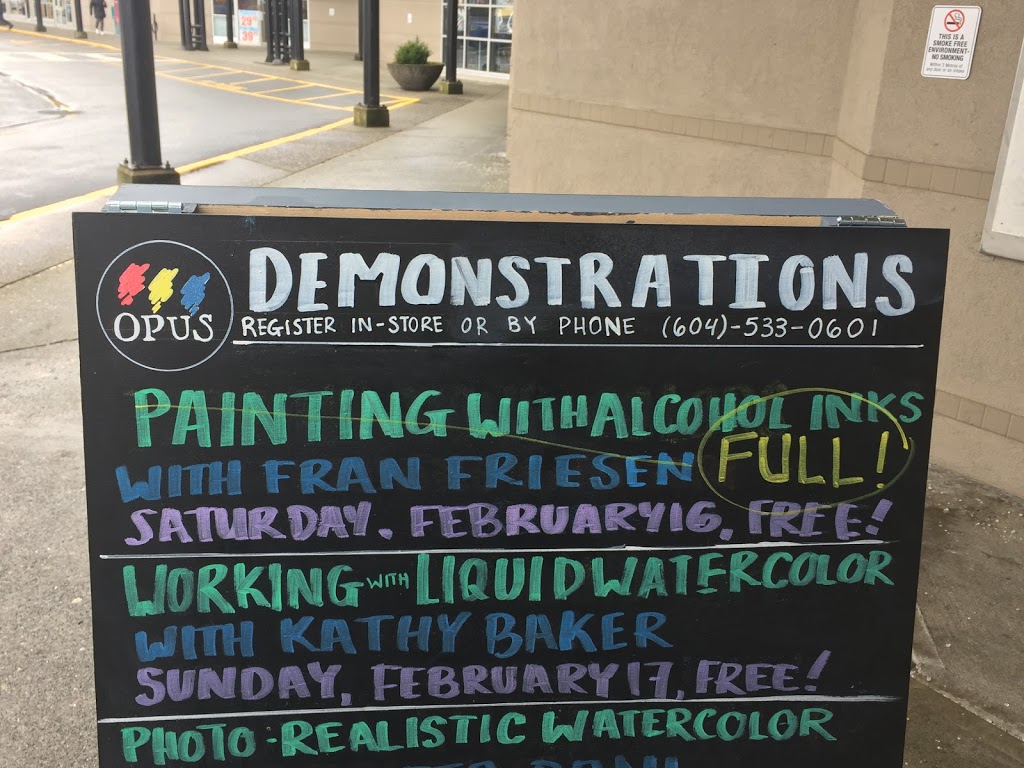 29
39
THIS IS A
SMOKE FREE
ENVIRONMENT-
NO SMOKING
OPUS
DEMONSTRATIONS
REGISTER IN-STORE OR BY PHONE (604)-533-0601
PAINTING WITH ALCOHOL INKS
FULL!
WITH FRAN FRIESEN
SATURDAY, FEBRUARY 16, FREE!
WORKING WITH LIQUID WATERCOLOR
WITH KATHY BAKER
SUNDAY, FEBRUARY 17, FREE!
PHOTO-REALISTIC WATERCOLOR